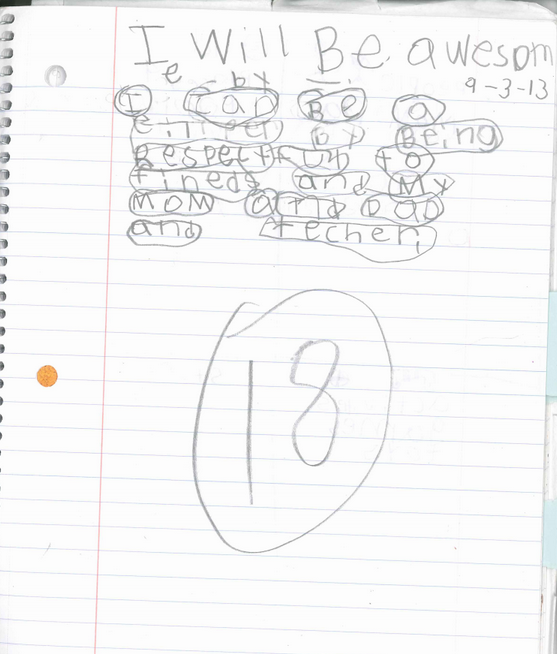 I Will Be awesom
e by
9-3-13
I can Be a
by Being
Respectful to
fineds and My
MOM and Dad
and techer,
18